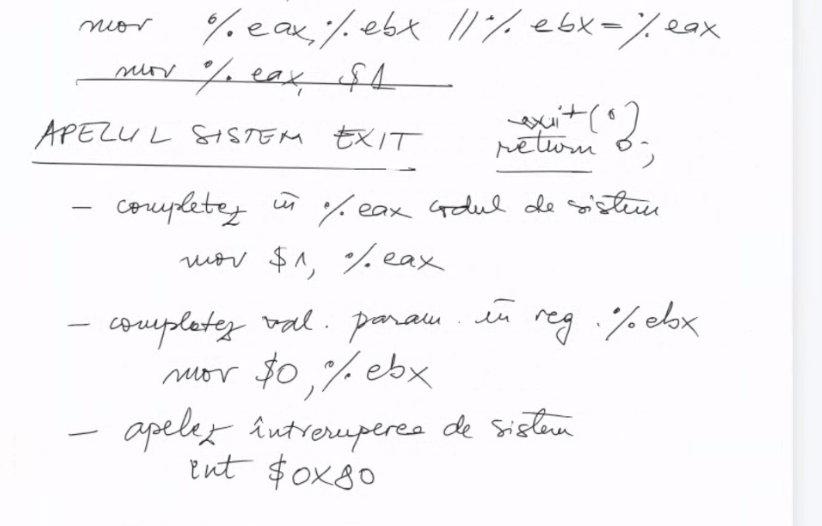 mov %eax, %ebx // %ebx = %eax
mov %eax, $1
APELUL SISTEM EXIT
exit(0)
return 0;
- completez în %eax codul de sistem
mov $1, %eax
- completez val. param. în reg. %ebx
mov $0, %ebx
- apelez întreruperea de sistem
int $0x80